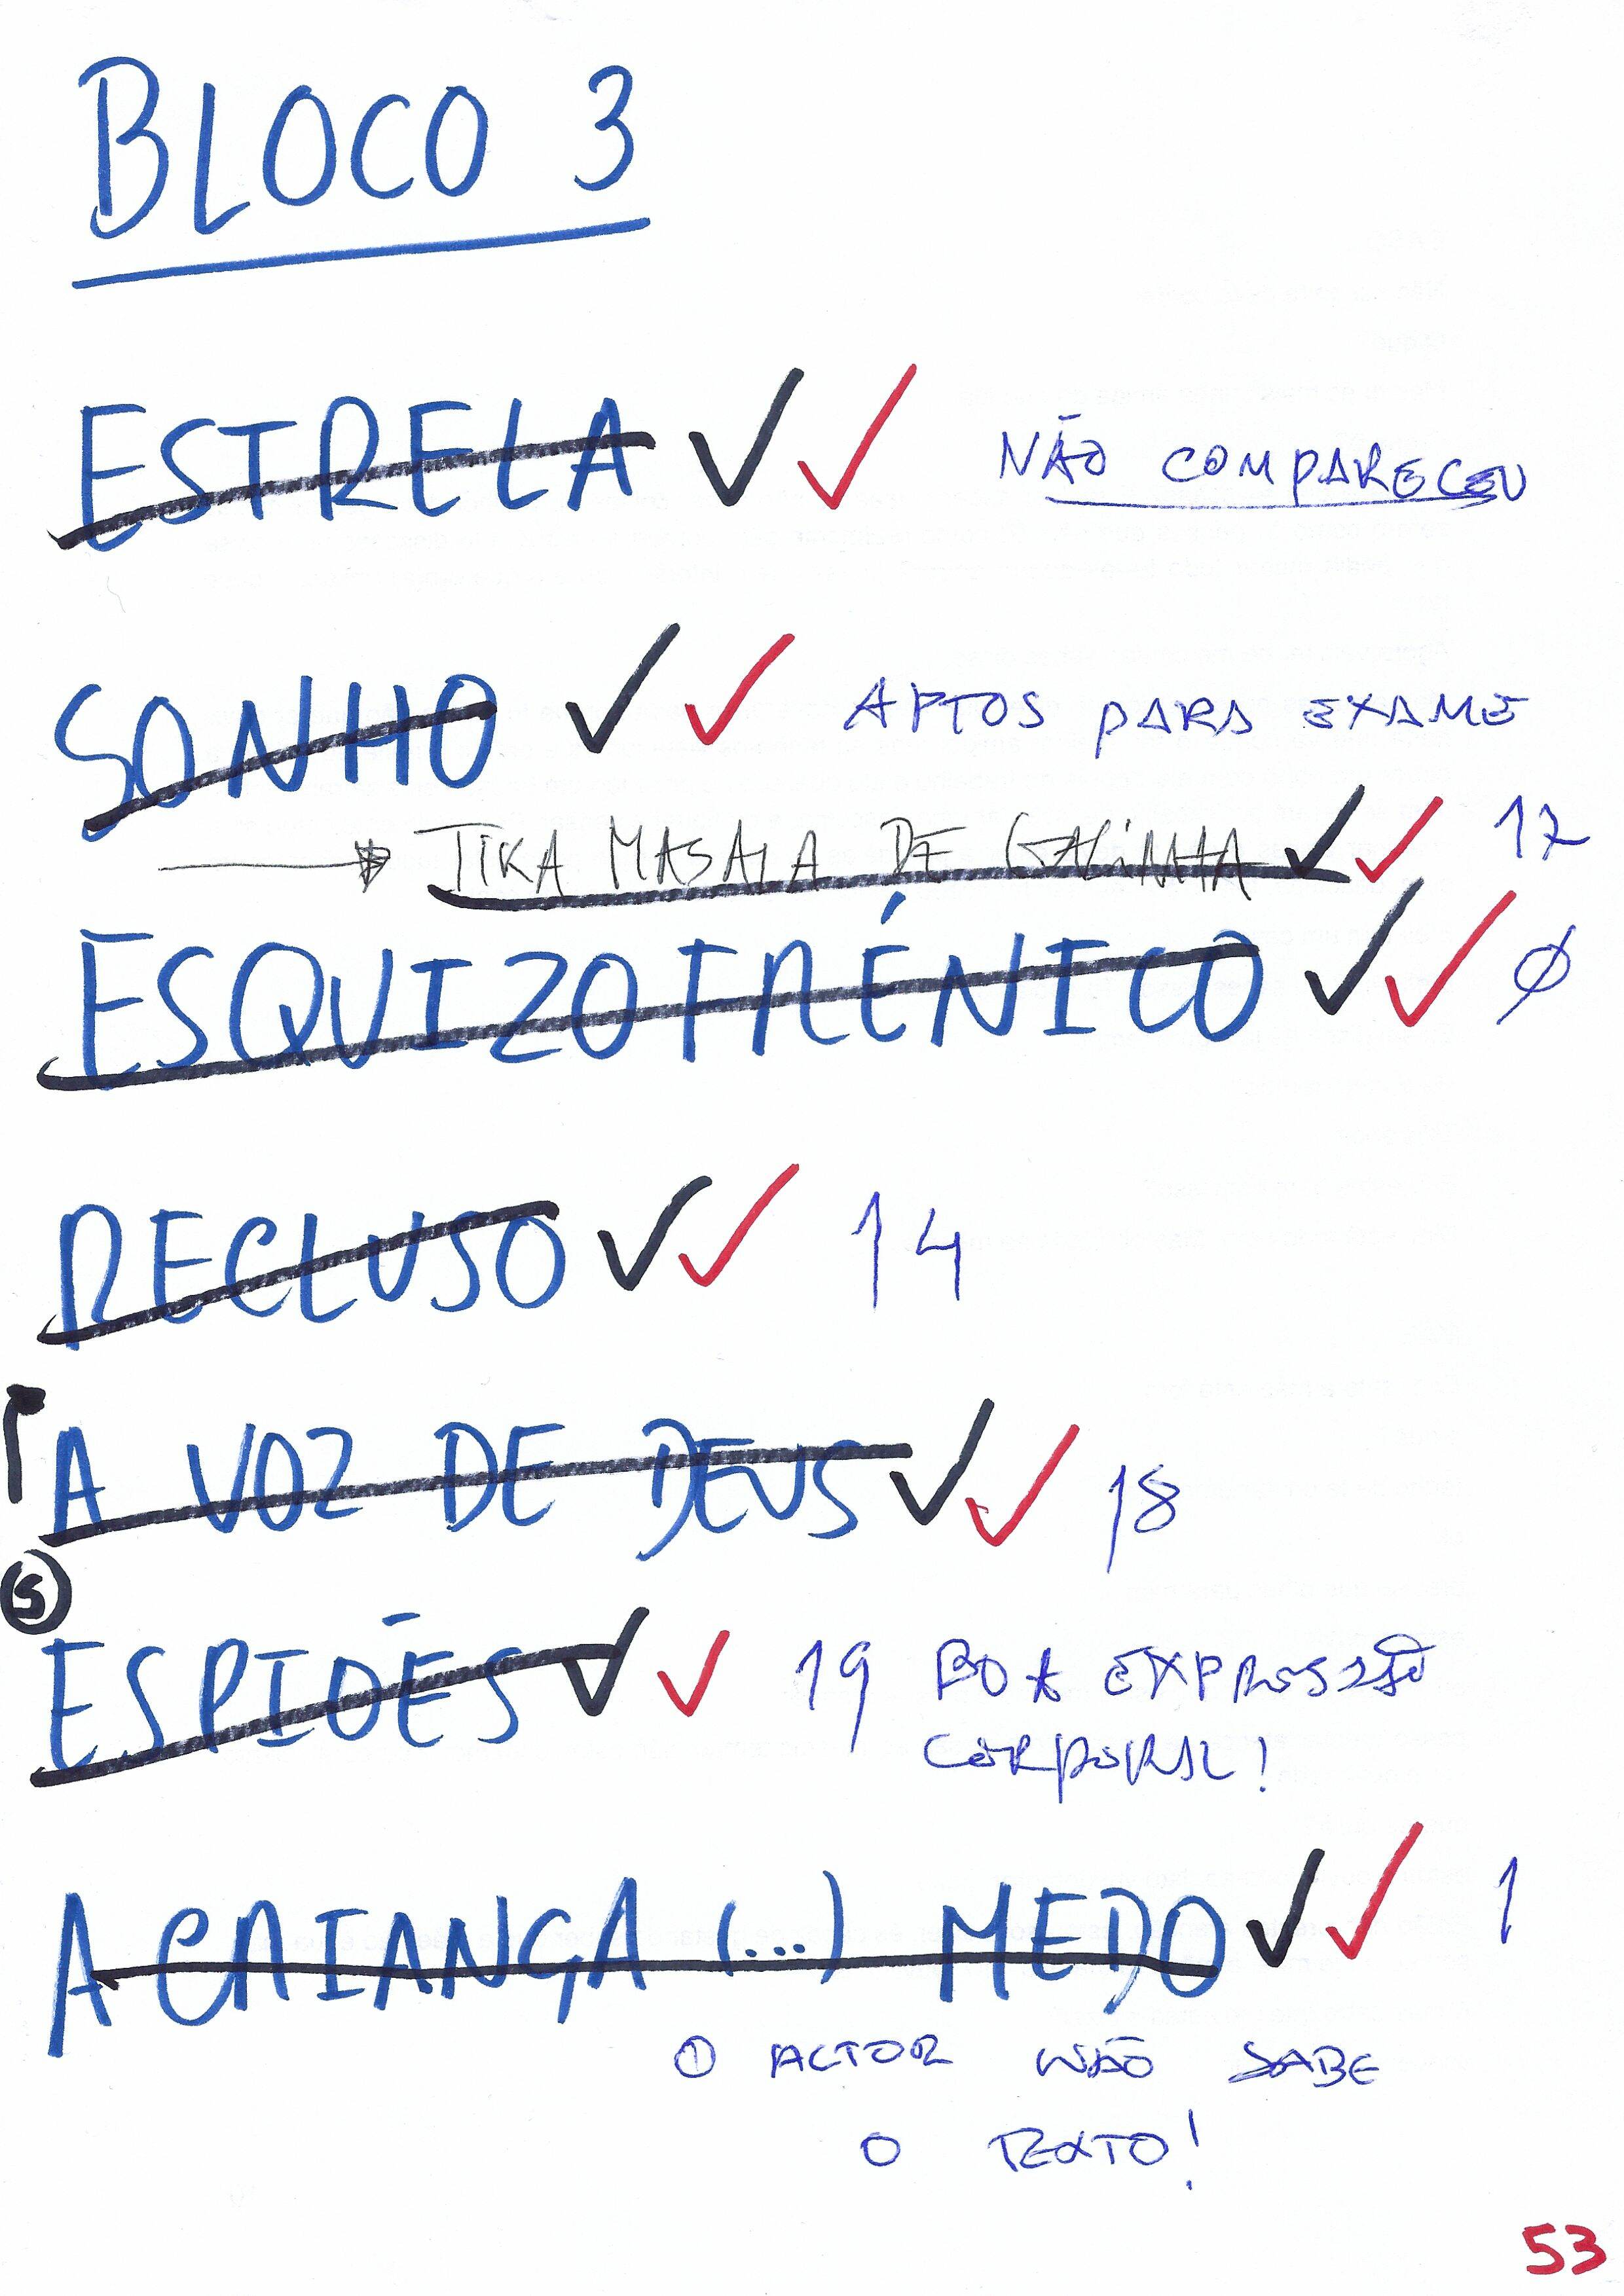 BLOCO 3
ESTRELA ✓✓ NÃO COMPARECEU
SONHO ✓✓ APTOS PARA EXAME
→ TIKA MASALA DE GALINHA ✓✓ 17
ESQUIZOFRÉNICO ✓✓ Ø
RECLUSO ✓✓ 14
A VOZ DE DEUS ✓✓ 18
5
ESPIÕES ✓✓ 19 BOA EXPRESSÃO
CORPORAL!
A CRIANÇA (...) MEDO ✓✓ 1
O ACTOR NÃO SABE
O TEXTO!
53